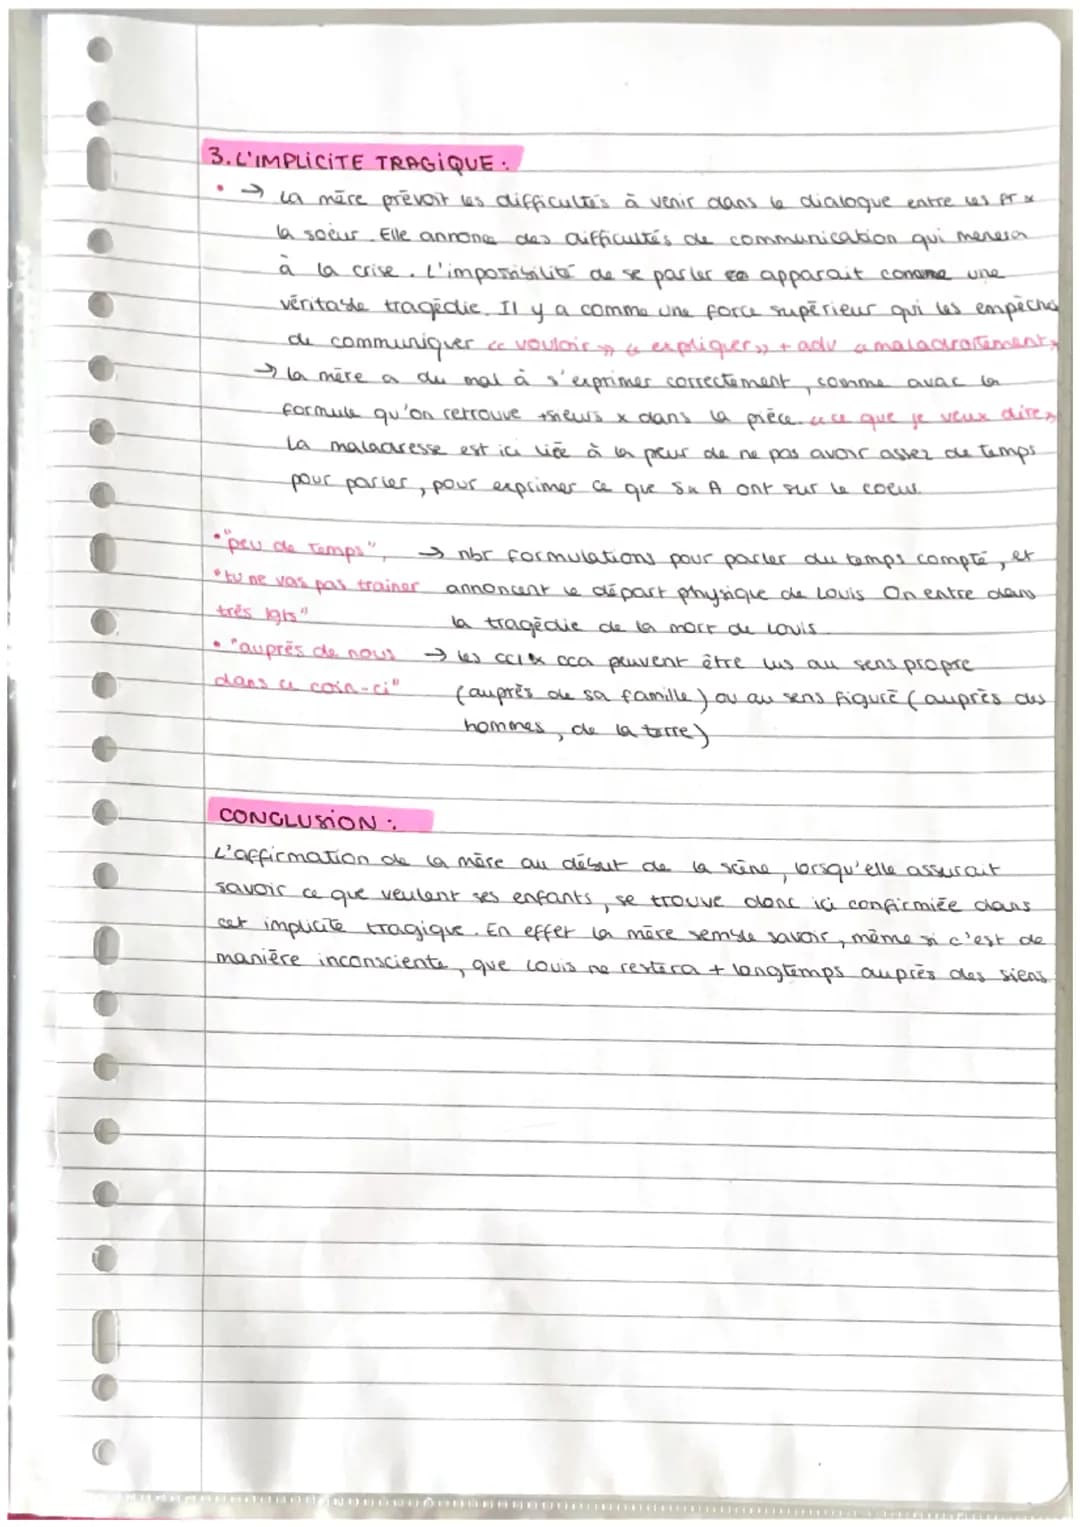 3. L'IMPLICITE TRAGIQUE :
• → La mère prévoit les difficultés à venir dans le dialogue entre les fr x
la soeur. Elle annonce des difficultés de communication qui mènera
à la crise. L'impossibilité de se parler apparait comme une
véritable tragédie. Il y a comme une force supérieur qui les empêche
de communiquer « vouloir » « expliquer » + adv « maladroitement »
→ la mère a du mal à s'exprimer correctement, comme avac la
formule qu'on retrouve +sieurs x dans la pièce. « ce que je veux dire »
La maladresse est ici liée à la peur de ne pas avoir assez de temps
pour parler, pour exprimer ce que S x A ont sur le coeur.
• "peu de temps", → nbr formulations pour parler du temps compté, et
• "tu ne vas pas trainer annoncent le départ physique de Louis On entre dans
très lgts" la tragédie de la mort de Louis.
• "auprès de nous → les CCL x CCA peuvent être lus au sens propre
dans ce coin-ci" (auprès de sa famille) ou au sens figuré (auprès des
hommes, de la terre)
CONCLUSION :
L'affirmation de la mère au début de la scène, lorsqu'elle assurait
savoir ce que veulent ses enfants, se trouve donc ici confirmiée dans
cet implicite tragique. En effet la mère semble savoir, même si c'est de
manière inconsciente, que Louis ne restera + longtemps auprès des siens